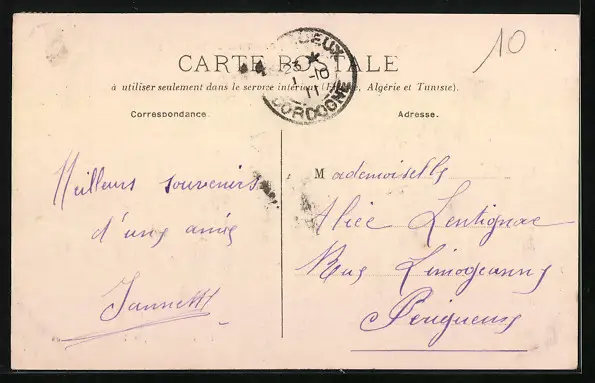 10
CARTE POSTALE
à utiliser seulement dans le service intérieur (France, Algérie et Tunisie).
DORDOGNE
Correspondance.
Adresse.
Meilleurs souvenirs
d'une amie
Mademoiselle
Alice Lentignac
Rue Limogeanne
Périgueux